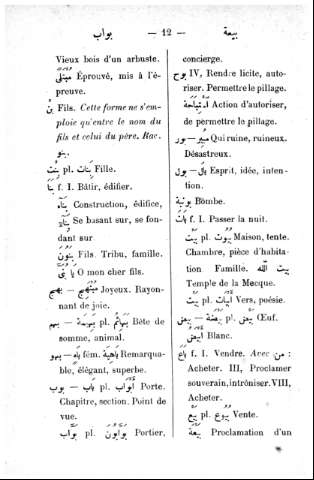 بواب — 12 — بيعة
Vieux bois d'un arbuste.
مبتلى Éprouvé, mis à l'é-
preuve.
بن Fils. Cette forme ne s'em-
ploie qu'entre le nom du
fils et celui du père. Rac.
بنو
بنت pl. بنات Fille.
بنا f. I. Bâtir, édifier.
بناء Construction, édifice,
Se basant sur, se fon-
dant sur
بنون Fils. Tribu, famille.
يا بني O mon cher fils.
بهج — Joyeux. Rayon-
nant de joie.
بهم — بهيمة pl. بهائم Bête de
somme, animal.
بهو — باه fém. باهية Remarqua-
ble, élégant, superbe.
بوب — باب pl. ابواب Porte.
Chapitre, section. Point de
vue.
بواب pl. بوابون Portier,
concierge.
بوح IV, Rendre licite, auto-
riser. Permettre le pillage.
Action d'autoriser,
de permettre le pillage.
بور — Qui ruine, ruineux.
Désastreux.
بول — بال Esprit, idée, inten-
tion.
Bômbe.
بات f. I. Passer la nuit.
بيت pl. بيوت Maison, tente.
Chambre, pièce d'habita-
tion Famille. بيت الله
Temple de la Mecque.
بيت pl. ابيات Vers, poésie.
بيض — بيضة pl. بيض Œuf.
ابيض Blanc.
باع f. I. Vendre. Avec من :
Acheter. III, Proclamer
souverain, introniser. VIII,
Acheter.
بيع pl. بيوع Vente.
بيعة Proclamation d'un